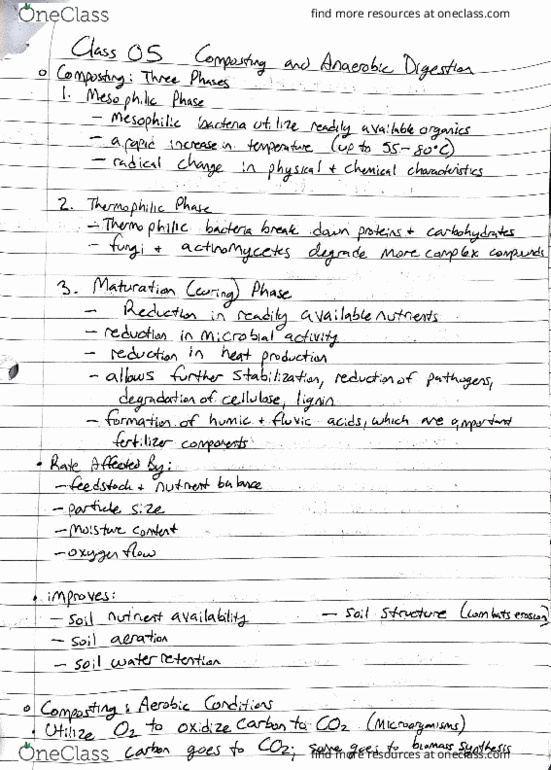 OneClass
find more resources at oneclass.com
Class 05 Composting and Anaerobic Digestion
Composting: Three Phases
1. Mesophilic Phase
- Mesophilic bacteria utilize readily available organics
- a rapid increase in temperature (up to 55-80°C)
- radical change in physical + chemical characteristics
2. Thermophilic Phase
- Thermophilic bacteria break down proteins + carbohydrates
- fungi + actinomycetes degrade more complex compounds
3. Maturation (curing) Phase
- Reduction in readily available nutrients
- reduction in microbial activity
- reduction in heat production
- allows further stabilization, reduction of pathogens,
degradation of cellulose, lignin
- formation of humic + fluvic acids, which are important
fertilizer components
• Rate Affected By:
- feedstock + nutrient balance
- particle size
- moisture content
- oxygen flow
• improves:
- soil nutrient availability - soil structure (combats erosion)
- soil aeration
- soil water retention
Composting: Aerobic Conditions
• Utilize O2 to oxidize carbon to CO2 (Microorganisms)
carbon goes to CO2; some goes to biomass synthesis
OneClass
find more resources at oneclass.com